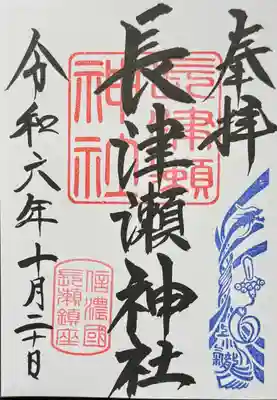 奉拝
長津瀬神社
令和六年十月二十日
長津瀬
神社
信濃國
長瀬鎮座